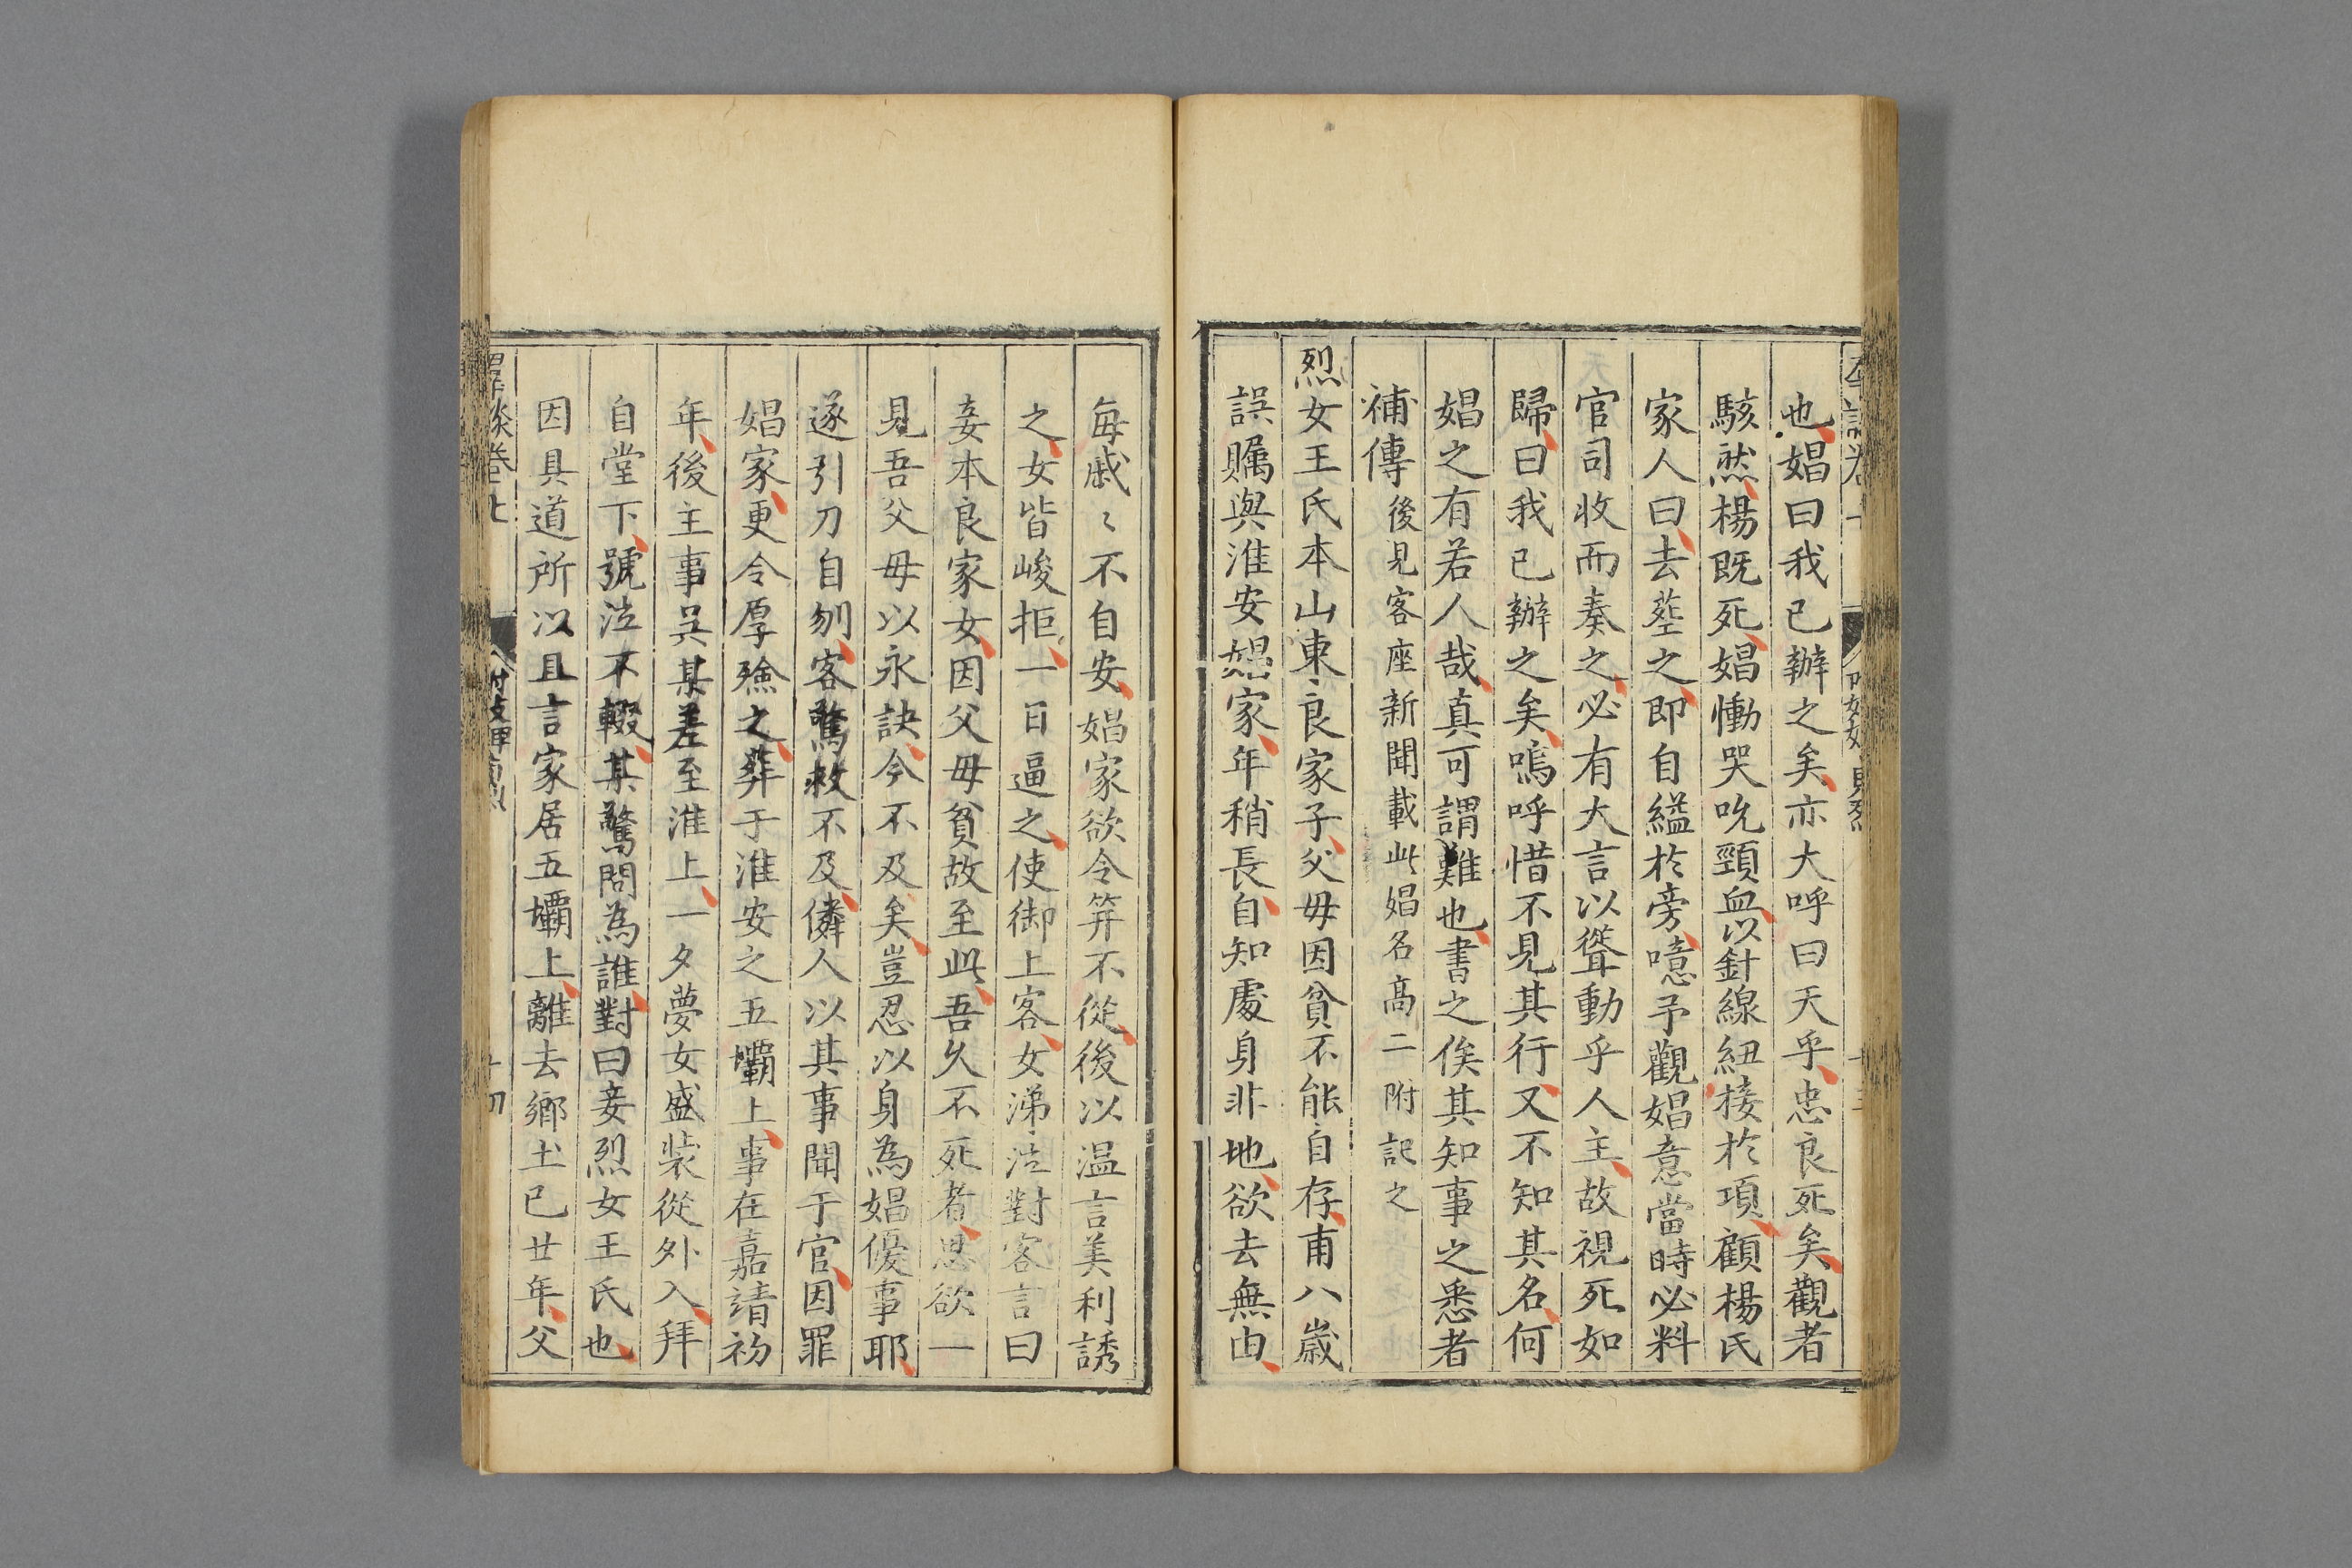 也娼曰我已辦之矣亦大呼曰天乎忠良死矣觀者
駭然楊既死娼慟哭吮頸血以針線紐接於項顧楊氏
家人曰去塟之即自縊於旁噫予觀娼意當時必料
官司收而奏之必有大言以聳動乎人主故視死如
歸曰我已辦之矣嗚呼惜不見其行又不知其名何
娼之有若人哉真可謂難也書之俟其知事之悉者
補傳後見客座新聞載此娼名高二附記之
烈女王氏本山東良家子父母因貧不能自存甫八歲
誤賜與淮安娼家年稍長自知處身非地欲去無由
每戚〻不自安娼家欲令笄不從後以温言美利誘
之女皆峻拒一日逼之使御上客女涕泣對客言曰
妾本良家女因父母貧故至此吾久不死者思欲一
見吾父母以永訣今不及矣豈忍以身為娼優事耶
遂引刀自刎客驚救不及隣人以其事聞于官因罪
娼家更令厚殮之葬于淮安之五壩上事在嘉靖初
年後主事吳某差至淮上一夕夢女盛裝從外入拜
自堂下號泣不輟某驚問為誰對曰妾烈女王氏也
因具道所以且言家居五壩上離去鄉土已廿年父